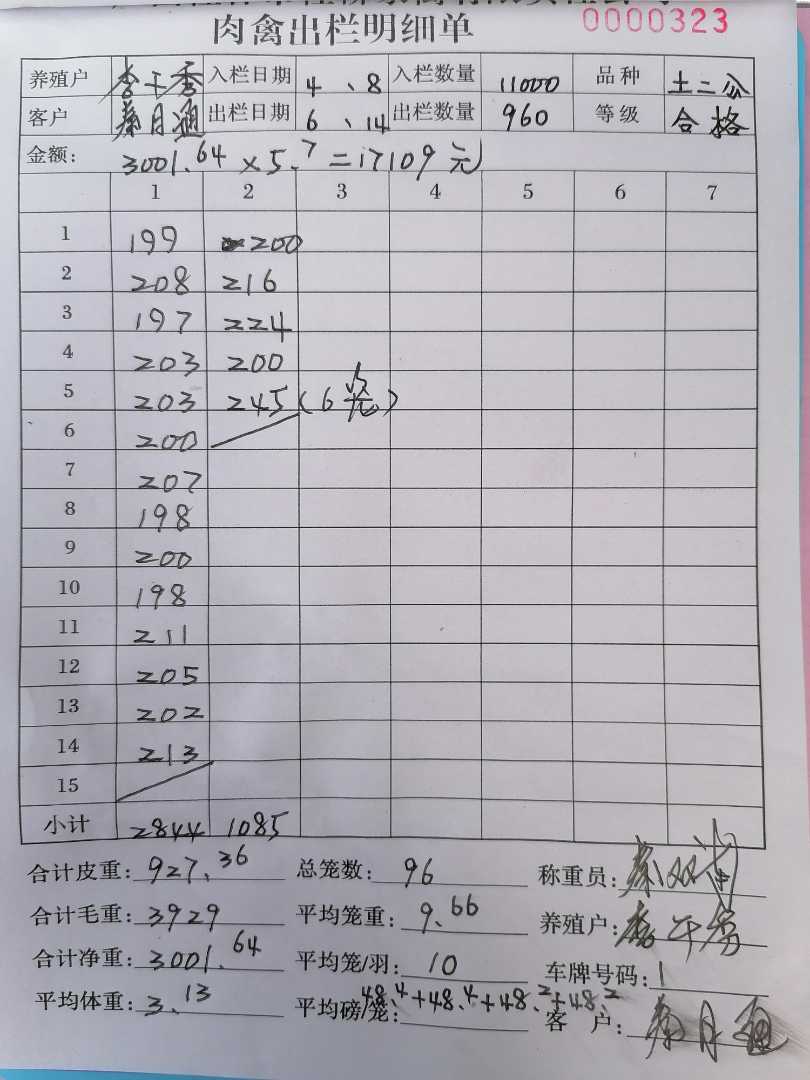 肉禽出栏明细单 0000323
养殖户 入栏日期 4、8 入栏数量 11000 品种 土二公
客户 秦月通 出栏日期 6、14 出栏数量 960 等级 合格
金额: 3001.64×5.7=17109元
1 2 3 4 5 6 7
1 199 200
2 208 216
3 197 224
4 203 200
5 203 245(6笼)
6 200
7 207
8 198
9 200
10 198
11 211
12 205
13 202
14 213
15
小计 2844 1085
合计皮重: 927.36 总笼数: 96 称重员:
合计毛重: 3929 平均笼重: 9.66 养殖户:
合计净重: 3001.64 平均笼/羽: 10 车牌号码: 1
平均体重: 3.13 平均磅/笼: 48.4+48.4+48.2+48.2 客 户: 秦月通